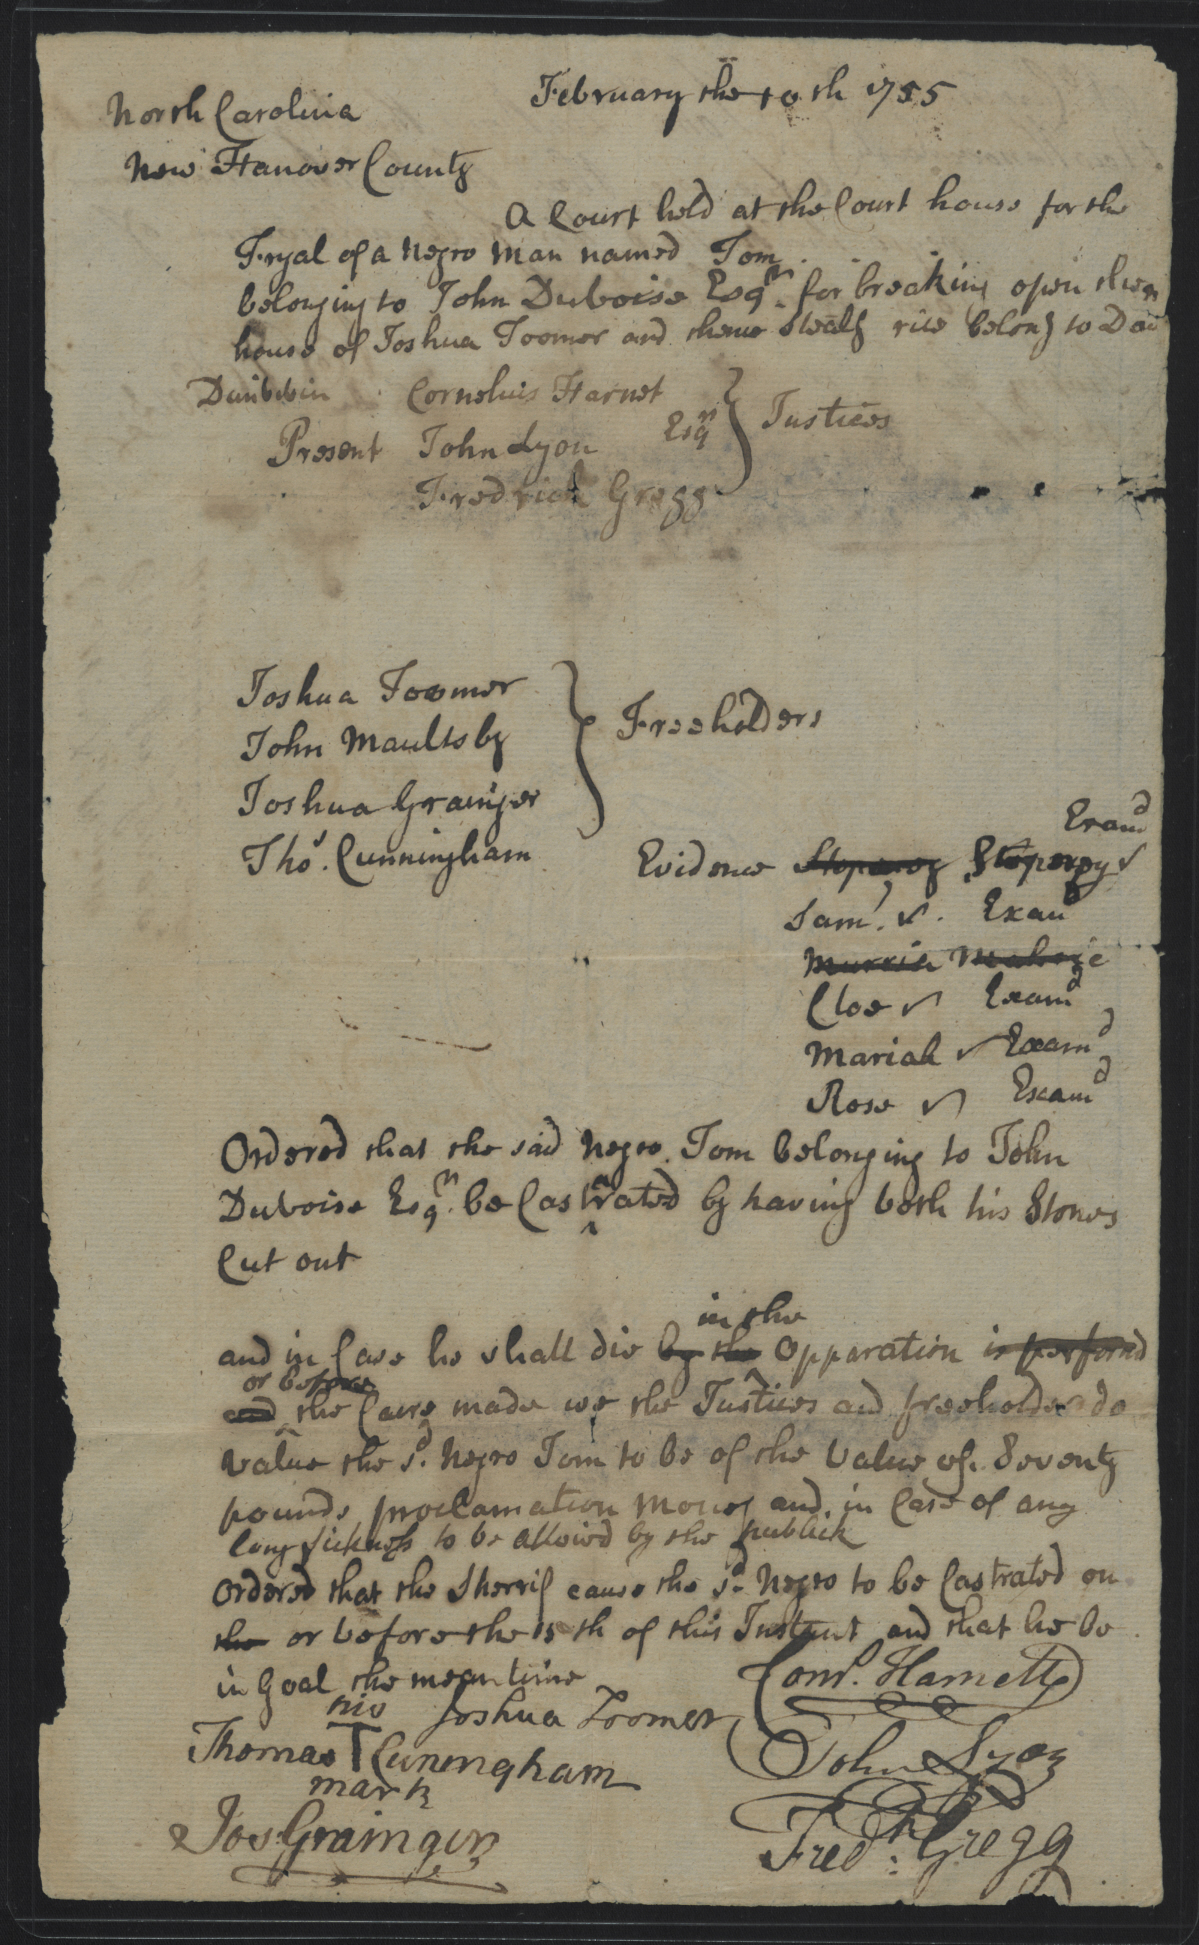 February the 10th 1755
North Carolina
New Hanover County
A Court held at the Court house for the
Tryal of a Negro Man named Tom
belonging to John Duboise Esqr. for breaking open the
house of Joshua Toomer and thence Stealg rice belong to
Dunbibin Cornelius Harnet
Present John Lyon Esqr } Justices
Fredrick Gregg
Joshua Toomer
John Maultsby } Freeholders
Joshua Grainger
Thos. Cunningham
Examd
Evidence Stepney Stepney
Saml. Examd
Murria
Cloe Examd
Mariah Examd
Rose Examd
Ordered that the said Negro Tom belonging to John
Duboise Esqr. be Castrated by having both his Stones
Cut out
in the
and in Case he shall die by the Opparation is perform'd
or before
and the Caire made we the Justices and freeholders do
value the sd. Negro Tom to be of the Value of Seventy
pounds proclamation Money and in Case of any
long sickness to be allowed by the publick
Ordered that the Sherrif cause the sd. Negro to be Castrated on
the or before the 15th of this Instant and that he be
in Goal the mean time
Cornl. Harnett
his Joshua Toomer
Thomas T Cuningham John Lyon
mark
Jos Grainger Fredk. Gregg